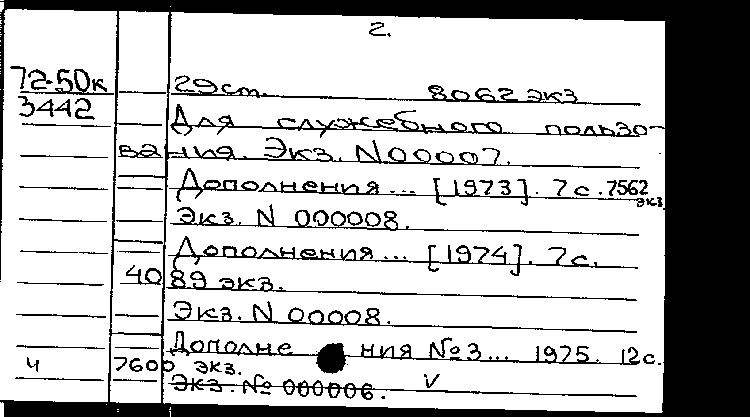 2.
72-50к
3442
29 ст. 8062 экз
Для служебного пользо-
вания. Экз. N00007.
Дополнения... [1973]. 7с. 7562 экз.
Экз. N 000008.
Дополнения... [1974]. 7с.
4089 экз.
Экз. N 00008.
Дополне ния №3... 1975. 12с.
ч 7600 экз.
Экз. № 000006. V